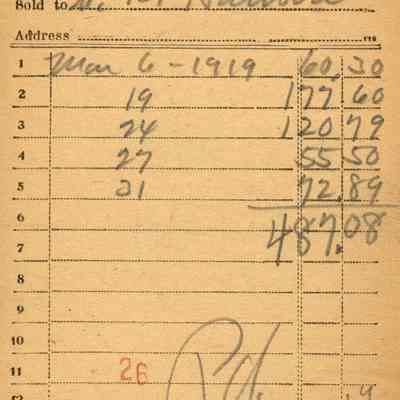 Sold to
Address cts
1 Mar 6 - 1919 60.30
2 19 177 60
3 24 120 79
4 27 55 50
5 31 72.89
6 487.08
7
8
9
10
11 26
12
Pd.